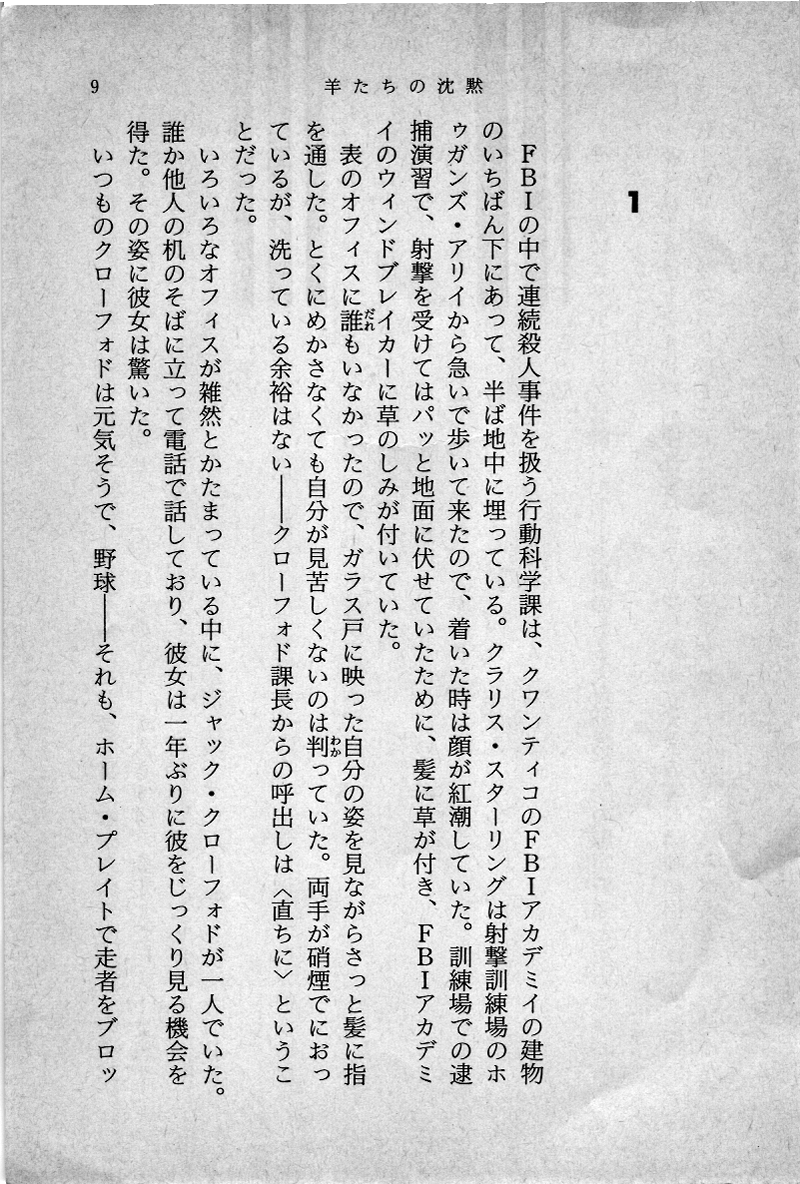 9
羊たちの沈黙
1
　ＦＢＩの中で連続殺人事件を扱う行動科学課は、クワンティコのＦＢＩアカデミイの建物
のいちばん下にあって、半ば地中に埋っている。クラリス・スターリングは射撃訓練場のホ
ゥガンズ・アリイから急いで歩いて来たので、着いた時は顔が紅潮していた。訓練場での逮
捕演習で、射撃を受けてはパッと地面に伏せていたために、髪に草が付き、ＦＢＩアカデミ
イのウィンドブレイカーに草のしみが付いていた。
　表のオフィスに誰だれもいなかったので、ガラス戸に映った自分の姿を見ながらさっと髪に指
を通した。とくにめかさなくても自分が見苦しくないのは判わかっていた。両手が硝煙でにおっ
ているが、洗っている余裕はない――クローフォド課長からの呼出しは〈直ちに〉というこ
とだった。
　いろいろなオフィスが雑然とかたまっている中に、ジャック・クローフォドが一人でいた。
誰か他人の机のそばに立って電話で話しており、彼女は一年ぶりに彼をじっくり見る機会を
得た。その姿に彼女は驚いた。
　いつものクローフォドは元気そうで、野球――それも、ホーム・プレイトで走者をブロッ